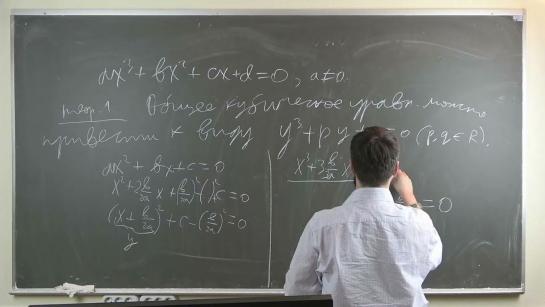 ax³ + bx² + cx + d = 0, a ≠ 0.
теор. 1 Общее кубическое уравн. можно
привести к виду y³ + py = 0 (p, q ∈ R).
ax² + bx + c = 0
x² + 2 b/2a x + (b/2a)² - ( )² c = 0
(x + b/2a)² + c - (b/2a)² = 0
y
x³ + 3 b/3a x
= 0